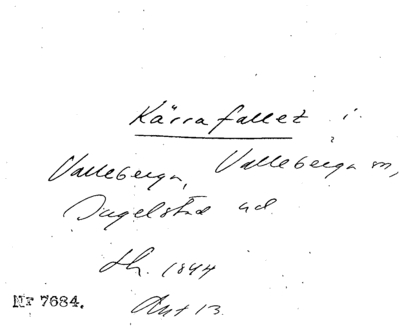 Kärrafallet i
Valleberga, Valleberga sn,
Ingelstad hd
Lh. 1844
Nr 7684.
Ant 13.